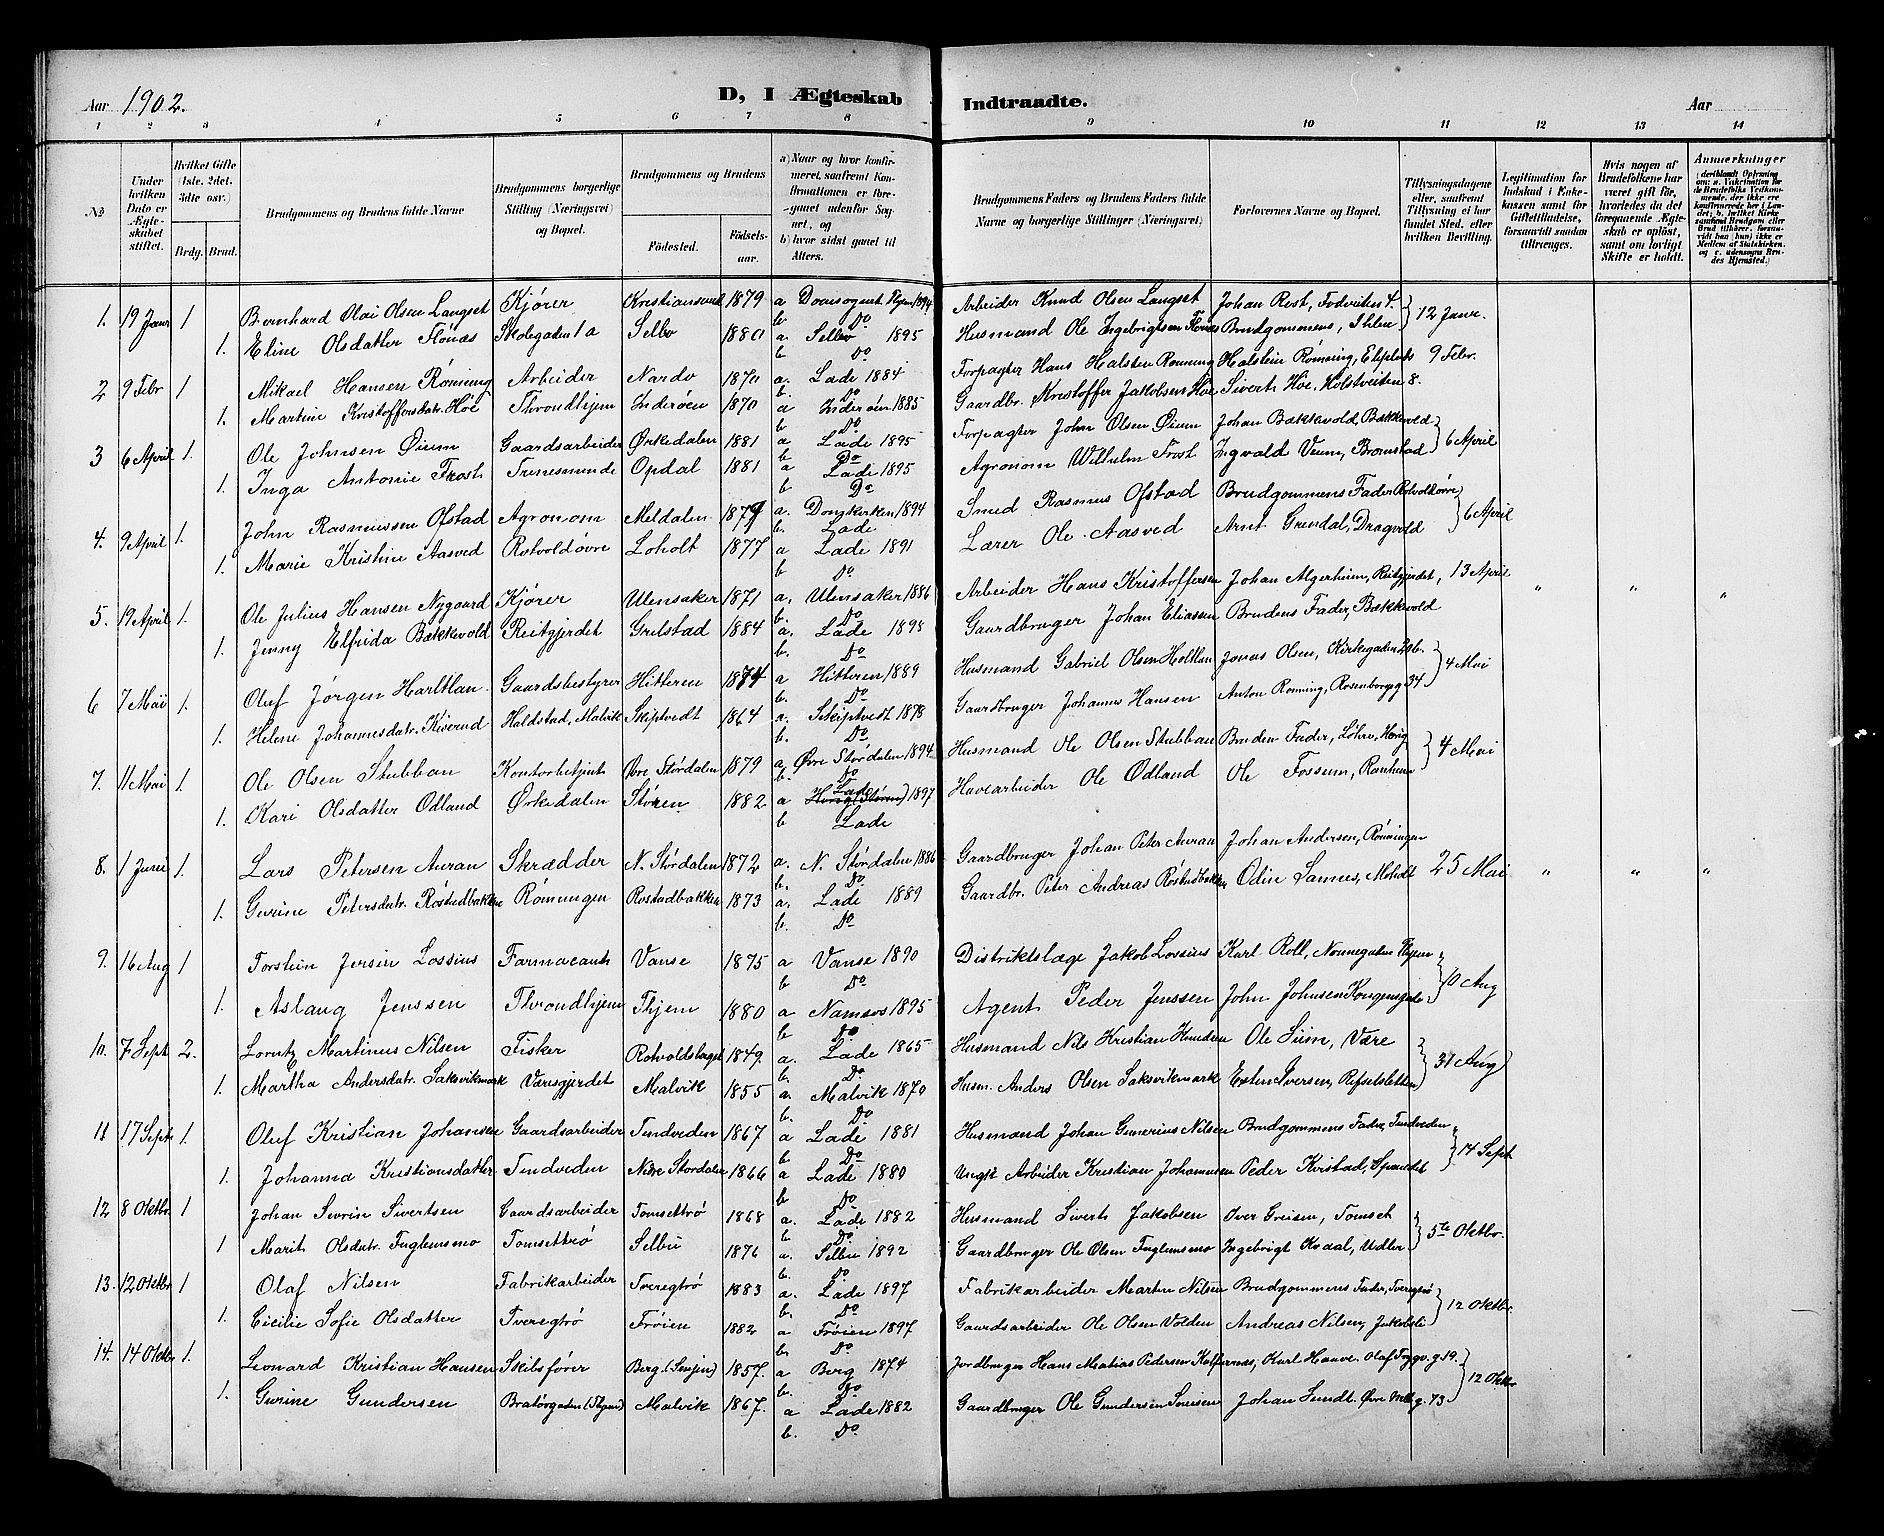 Aar 1902. D, I Ægteskab Indtraadte. Aar
1 2 3 4 5 6 7 8 9 10 11 12 13 14
No
Under hvilken Dato er Ægteskabet stiftet.
Hvilket Gifte (1ste, 2det, 3die osv.)
Brdg. Brud.
Brudgommens og Brudens fulde Navne
Brudgommens borgerlige Stilling (Næringsvei) og Bopæl.
Brudgommens og Brudens
Fødested. Fødselsaar.
a) Naar og hvor konfirmeret, saafremt Konfirmationen er foregaaet udenfor Sognet, og
b) hvor sidst gaaet til Alters.
Brudgommens Faders og Brudens Faders fulde Navne og borgerlige Stillinger (Næringsvei)
Forlovernes Navne og Bopæl.
Tillysningsdagene eller, saafremt Tillysning ei har fundet Sted, efter hvilken Bevilling.
Legitimation for Indskud i Enkekassen samt for Giftetilladelse, forsaavidt saadan tiltrænges.
Hvis nogen af Brudefolkene har været gift før, hvorledes da det foregaaende Ægteskab er opløst, samt om lovligt Skifte er holdt.
Anmærkninger
(deriblandt Oplysning om: a. Vakcination for de Brudefolks Vedkommende, der ikke ere konfirmerede her i Landet; b. hvilket Kirkesamfund Brudgom eller Brud tilhører, forsaavidt han (hun) ikke er Medlem af Statskirken, og c. udensogns Brudes Hjemsted.)
1. 19 Janr 1 Bernhard Olai Olsen Langset Kjører Kristiansund 1879 a Domsognet Thjem 1894 b Do Arbeider Knud Olsen Langset Johan Rest, Fodveiten 4. 12 Janr.
1. Eline Olsdatter Flønæs Skolegaden 1 a Selbo 1880 a. Selbo 1895 b Do Husmand Ole Ingebrigtsen Flønæs Brudgommens, Ihlen
2 9 Febr 1 Mikael Hansen Rønning Arbeider Nardo 1870 a. Lade 1884 b. Do Forpagter Hans Halsten Rønning Halstein Rønning, Eliplads 9 Febr.
1. Martine Kristoffersdatr. Høe Throndhjem Inderøen 1870 a Inderøen 1885 b Do Gaardbr. Kristoffer Jakobsen Høe Sivert Høe, Holstveiten 8.
3 6 April 1. Ole Johnsen Øium Gaardsarbeider Ørkedalen 1881 a Lade 1895 b Do Forpagter John Olsen Øium Johan Bakkevold, Bækkevold 6 April
1. Inga Antonie Frost Trinesminde Opdal 1881 a Lade 1895 b Do Agronom Wilhelm Frost Ingvald Veum, Bromstad
4. 9 April 1. John Rasmussen Ofstad Agronom Meldalen 1879 a. Domkirken 1894 b. Lade Smed Rasmus Ofstad Brudgommens Fader, Rotvoldøvre 6 April
1. Marie Kristine Aasved Rotvoldøvre Loholt 1877 a Lade 1891 b Do Lærer Ole Aasved Arnt Grendal, Dragvold
5. 19 April 1. Ole Julius Hansen Nygaard Kjører Ulensaker 1871 a. Ulensaker 1886 b. Do Arbeider Hans Kristoffersen Johan Algerheim, Reitgjerdet, 13 April " " "
1. Jenny Elfrida Bækkevold Reitgjerdet Grilstad 1884 a. Lade 1898 b. Do Gaardbruger Johan Eliassen Brudens Fader, Bækkevold
6 7 Mai 1. Oluf Jørgen Harltlan Gaardsbestyrer Hitteren 1874 a Hitteren 1889 b. Do Husmand Gabriel Olsen Holtlan Jonas Olsen, Kirkegaden 20b. 4 Mai
1. Helene Johannesdatr. Kiserud Haldstad, Malvik Skiptvedt 1864 a. Skiptvedt 1878 b. Do Gaardbruger Johannes Hansen Anton Rønning, Rosenborgsg 34
7. 11 Mai 1. Ole Olsen Stubban Kontorbetjent Øvre Størdalen 1879 a. Øvre Størdalen 1894 b. Do Husmand Ole Olsen Stubban Bruden Fader, Løhre, Horig 4 Mai
1. Kari Olsdatter Ødland Ørkedalen Støren 1882 a Lade Horig (Støren) 1897 b Lade Havearbeider Ole Ødland Ole Fossum, Ranheim
8. 1 Juni 1. Lars Petersen Auran Skrædder N. Størdalen 1872 a. N. Størdalen 1886 b. Do Gaardbruger Johan Peter Auran Johan Andersen, Rønningen 25 Mai " " "
1. Gurine Petersdatr. Røstadbakken Rønningen Rostadbakken 1873 a. Lade 1889 b. Do Gaardbr. Peter Andreas Røstadbakken Odin Samnes, Moholt
9. 16 Aug 1 Torstein Jersin Lossius Farmaceut Vanse 1875 a Vanse 1890 b Do Distriktslæge Jakob Lossius Karl Roll, Nonnegaden Thjem 10 Aug
1. Aslaug Jenssen Throndhjem Thjem 1880 a Namsos 1895 b Do Agent Peder Jenssen John Johnsen Kongensgade
10. 7 Sept 2. Lorntz Martinus Nilsen Fisker Rotvoldshaget 1849. a. Lade 1865 b. Do Husmand Nils Kristian Knudsen Ole Sum, Være 31 Aug
1. Martha Andersdatr. Saksvikmark Væresgjerdet Malvik 1855 a. Malvik 1870 b. Do Husm. Anders Olsen Saksvikmark Esten Iversen, Refsetsletten
11 17 Sept 1. Oluf Kristian Johansen Gaardsarbeider Tundveden 1867 a Lade 1881 b Do Husmand Johan Gunerius Nilsen Brudgommens Fader, Tundveden 14 Sept
1. Johanna Kristiansdatter Tundveden Nedre Størdalen 1866 a Lade 1880 b Do Ungk. Arbeider Kristian Johannesen Peder Kirstad, Spandet
12 8 Oktbr. 1 Johan Sevrin Sivertsen Gaardsarbeider Tomsettrø 1868 a. Lade 1882 b Do Husmand Sivert Jakobsen Over Greisen, Tomset 5te Oktbr.
1 Marit Olsdatr. Fuglemsmo Tomsettrø Selbu 1876 a. Selbu 1892 b. Do Gaardbruger Ole Olsen Fuglemsmo Ingebrigt Kodal, Udler
13. 12 Oktbr 1 Olaf Nilsen Fabrikarbeider Tveregtrø 1883 a. Lade 1897 b. Do Fabrikarbeider Martin Nilsen Brudgommens Fader, Tveregtrø 12 Oktbr.
1. Cicilie Sofie Olsdatter Tveregtrø Frøien 1882 a Frøien 1897 b. Do Gaardsarbeider Ole Olsen Volden Andreas Nilsen, Jakobsli
14. 14 Oktbr 1. Leonard Kristian Hansen Skibsfører Berg (Senjen) 1857. a Berg 1874 b. Do Jordbruger Hans Matias Pedersen Kalfarnes, Karl Hauve. Olaf Trygv. g 19. 12 Oktbr
1. Gurine Gundersen Bratørgaden (Thjem) Malvik 1867. a Lade 1882 b. Do Gaardbruger Ole Gundersen Sneisen Johan Sundt. Øvre Mellg. 73